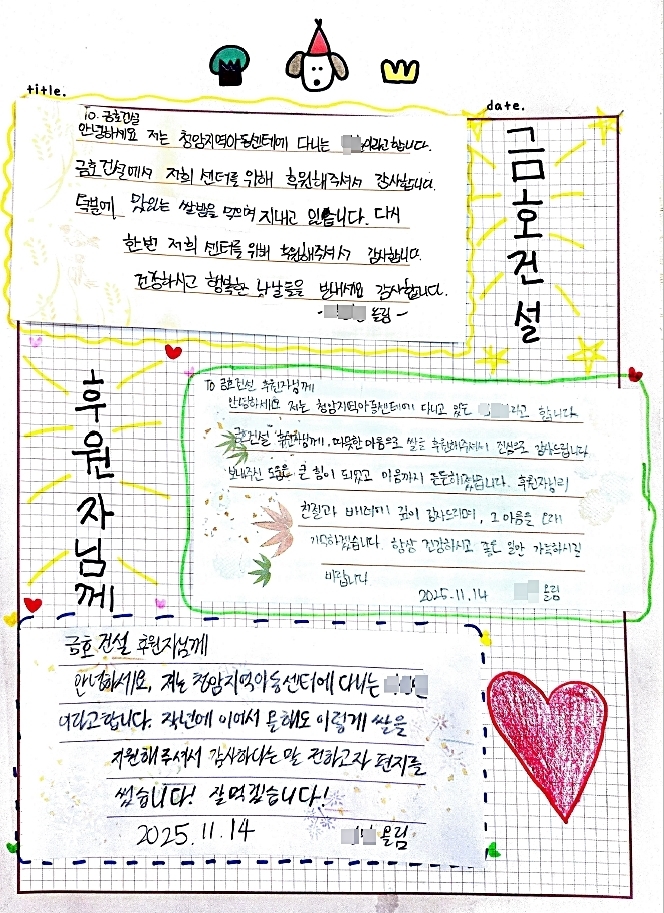 title.
date.
To. 금호건설
안녕하세요 저는 청암지역아동센터에 다니는 이라고합니다.
금호건설에서 저희 센터를 위해 후원해주셔서 감사합니다.
덕분에 맛있는 쌀밥을 먹으며 지내고 있습니다. 다시
한번 저희 센터를 위해 후원해주셔서 감사합니다.
건강하시고 행복한 나날들을 보내세요 감사합니다.
- 올림 -
금호건설
후원자님께
To 금호건설 후원자님께
안녕하세요 저는 청암지역아동센터에 다니고 있는 라고 합니다.
금호건설 후원자님께, 따뜻한 마음으로 쌀을 후원해주셔서 진심으로 감사드립니다
보내주신 도움은 큰 힘이 되었고 마음까지 든든해졌습니다. 후원자님의
친절과 배려에 깊이 감사드리며, 그 마음을 오래
기억하겠습니다. 항상 건강하시고 좋은 일만 가득하시길
바랍니다
2025.11.14 올림
금호건설 후원자님께
안녕하세요, 저는 청암지역아동센터에 다니는
이라고합니다. 작년에 이어서 올해도 이렇게 쌀을
지원해주셔서 감사하다는 말 전하고자 편지를
썼습니다! 잘먹겠습니다!
2025.11.14 올림